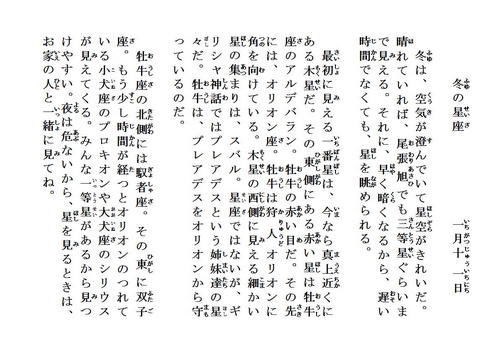 冬の星座
一月十一日
冬は、空気が澄んでいて星空がきれいだ。
晴れていれば、尾張旭でも三等星ぐらいま
で見える。それに、早く暗くなるから、遅い
時間でなくても、星を眺められる。
最初に見える一番星は、今なら真上近くに
ある木星だ。その東側にある赤い星は牡牛
座のアルデバラン。牡牛の赤い目だ。その先
には、オリオン座。牡牛は狩人オリオンに
角を向けている。木星の西側に見える細かい
星の集まりは、スバル。星座ではないが、ギ
リシャ神話ではプレアデスという姉妹達の星
々だ。牡牛は、プレアデスをオリオンから守
っているのだ。
牡牛座の北側には馭者座。その東に双子
座。もう少し時間が経つとオリオンのつれて
いる小犬座のプロキオンや大犬座のシリウス
が見えてくる。みんな一等星があるから見つ
けやすい。夜は危ないから、星を見るときは、
お家の人と一緒に見てね。